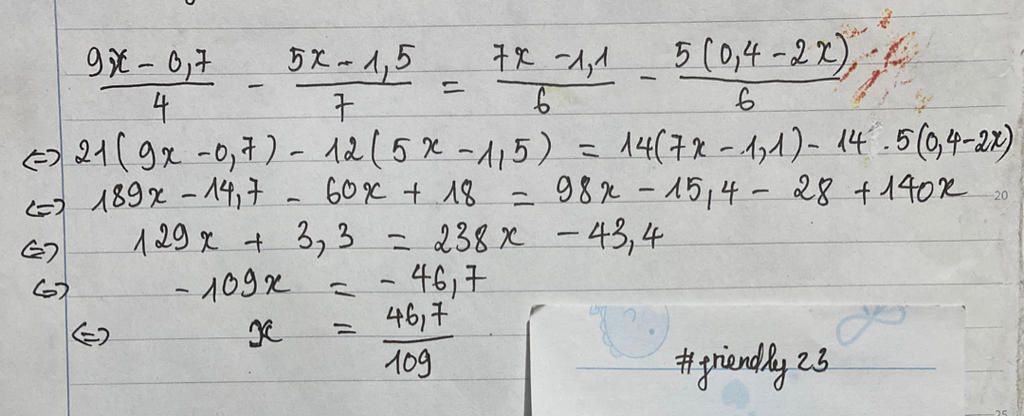 (9x - 0,7)/4 - (5x - 1,5)/7 = (7x - 1,1)/6 - 5(0,4 - 2x)/6
<=> 21(9x - 0,7) - 12(5x - 1,5) = 14(7x - 1,1) - 14 . 5(0,4 - 2x)
<=> 189x - 14,7 - 60x + 18 = 98x - 15,4 - 28 + 140x
<=> 129x + 3,3 = 238x - 43,4
<=> -109x = -46,7
<=> x = 46,7/109
#friendly 23
20
25